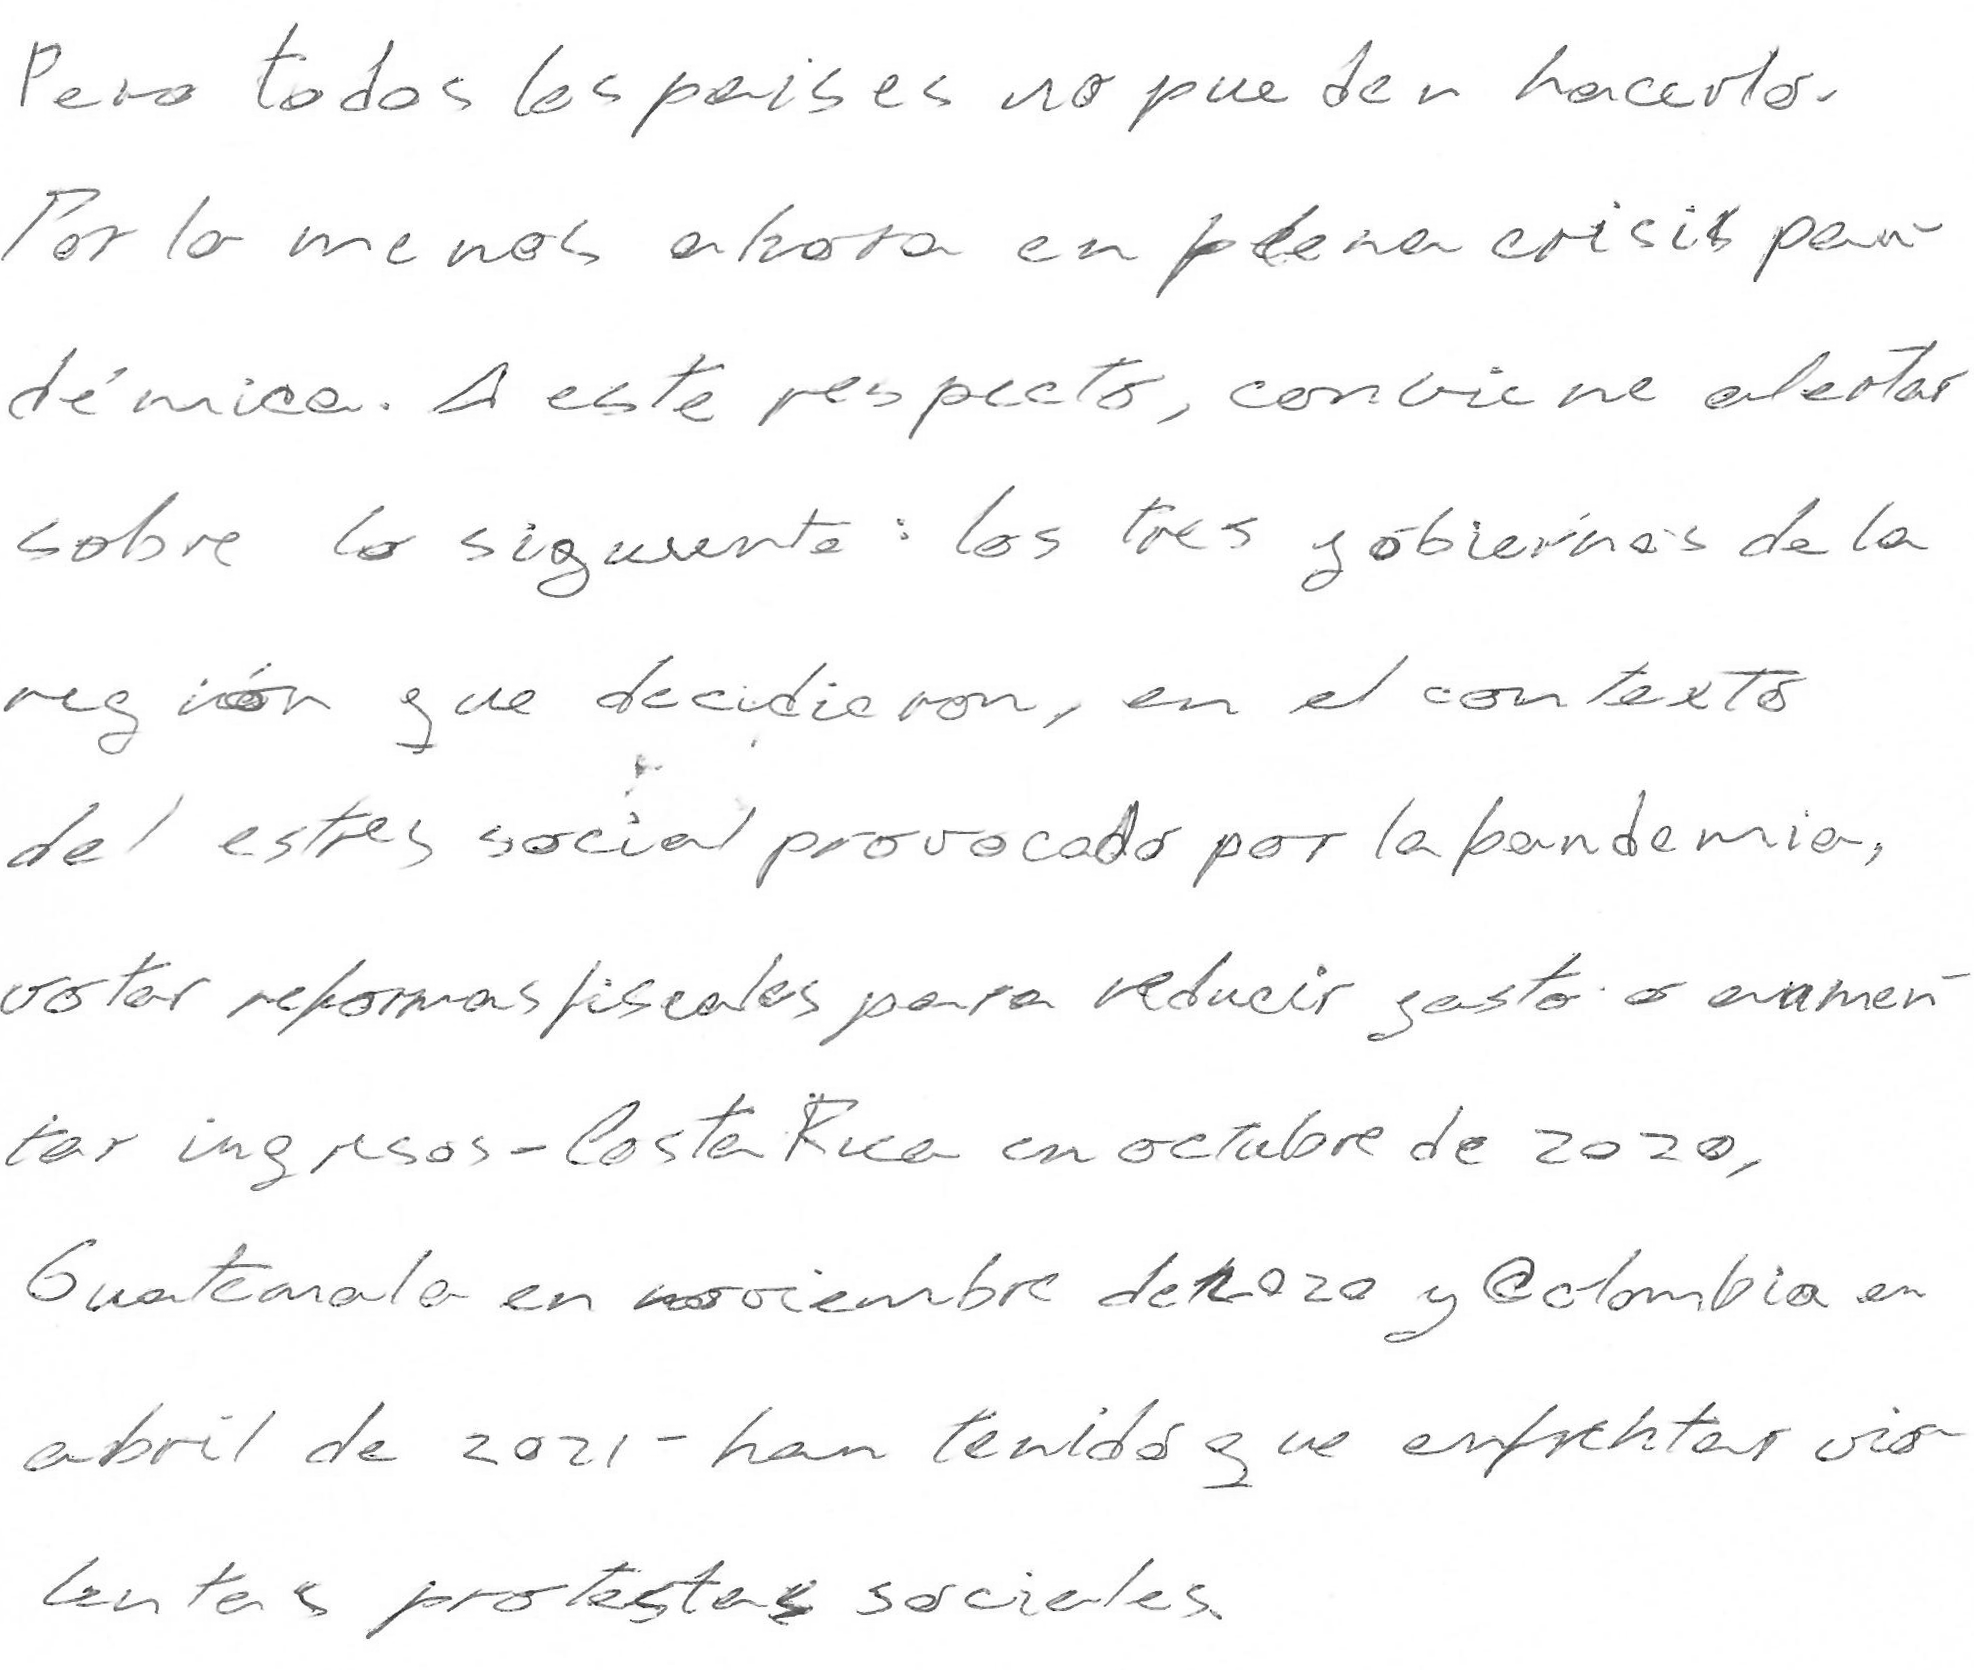 Pero todos los paises no pueden hacerlo.
Por lo menos ahora en plena crisis pan-
démica. A este respecto, conviene alertar
sobre lo siguiente: los tres gobiernos de la
región que decidieron, en el contexto
del estres social provocado por la pandemia,
votar reformas fiscales para reducir gasto o aumen-
tar ingresos - Costa Rica en octubre de 2020,
Guatemala en noviembre de 2020 y Colombia en
abril de 2021 - han tenido que enfrentar vio-
lentas protestas sociales.